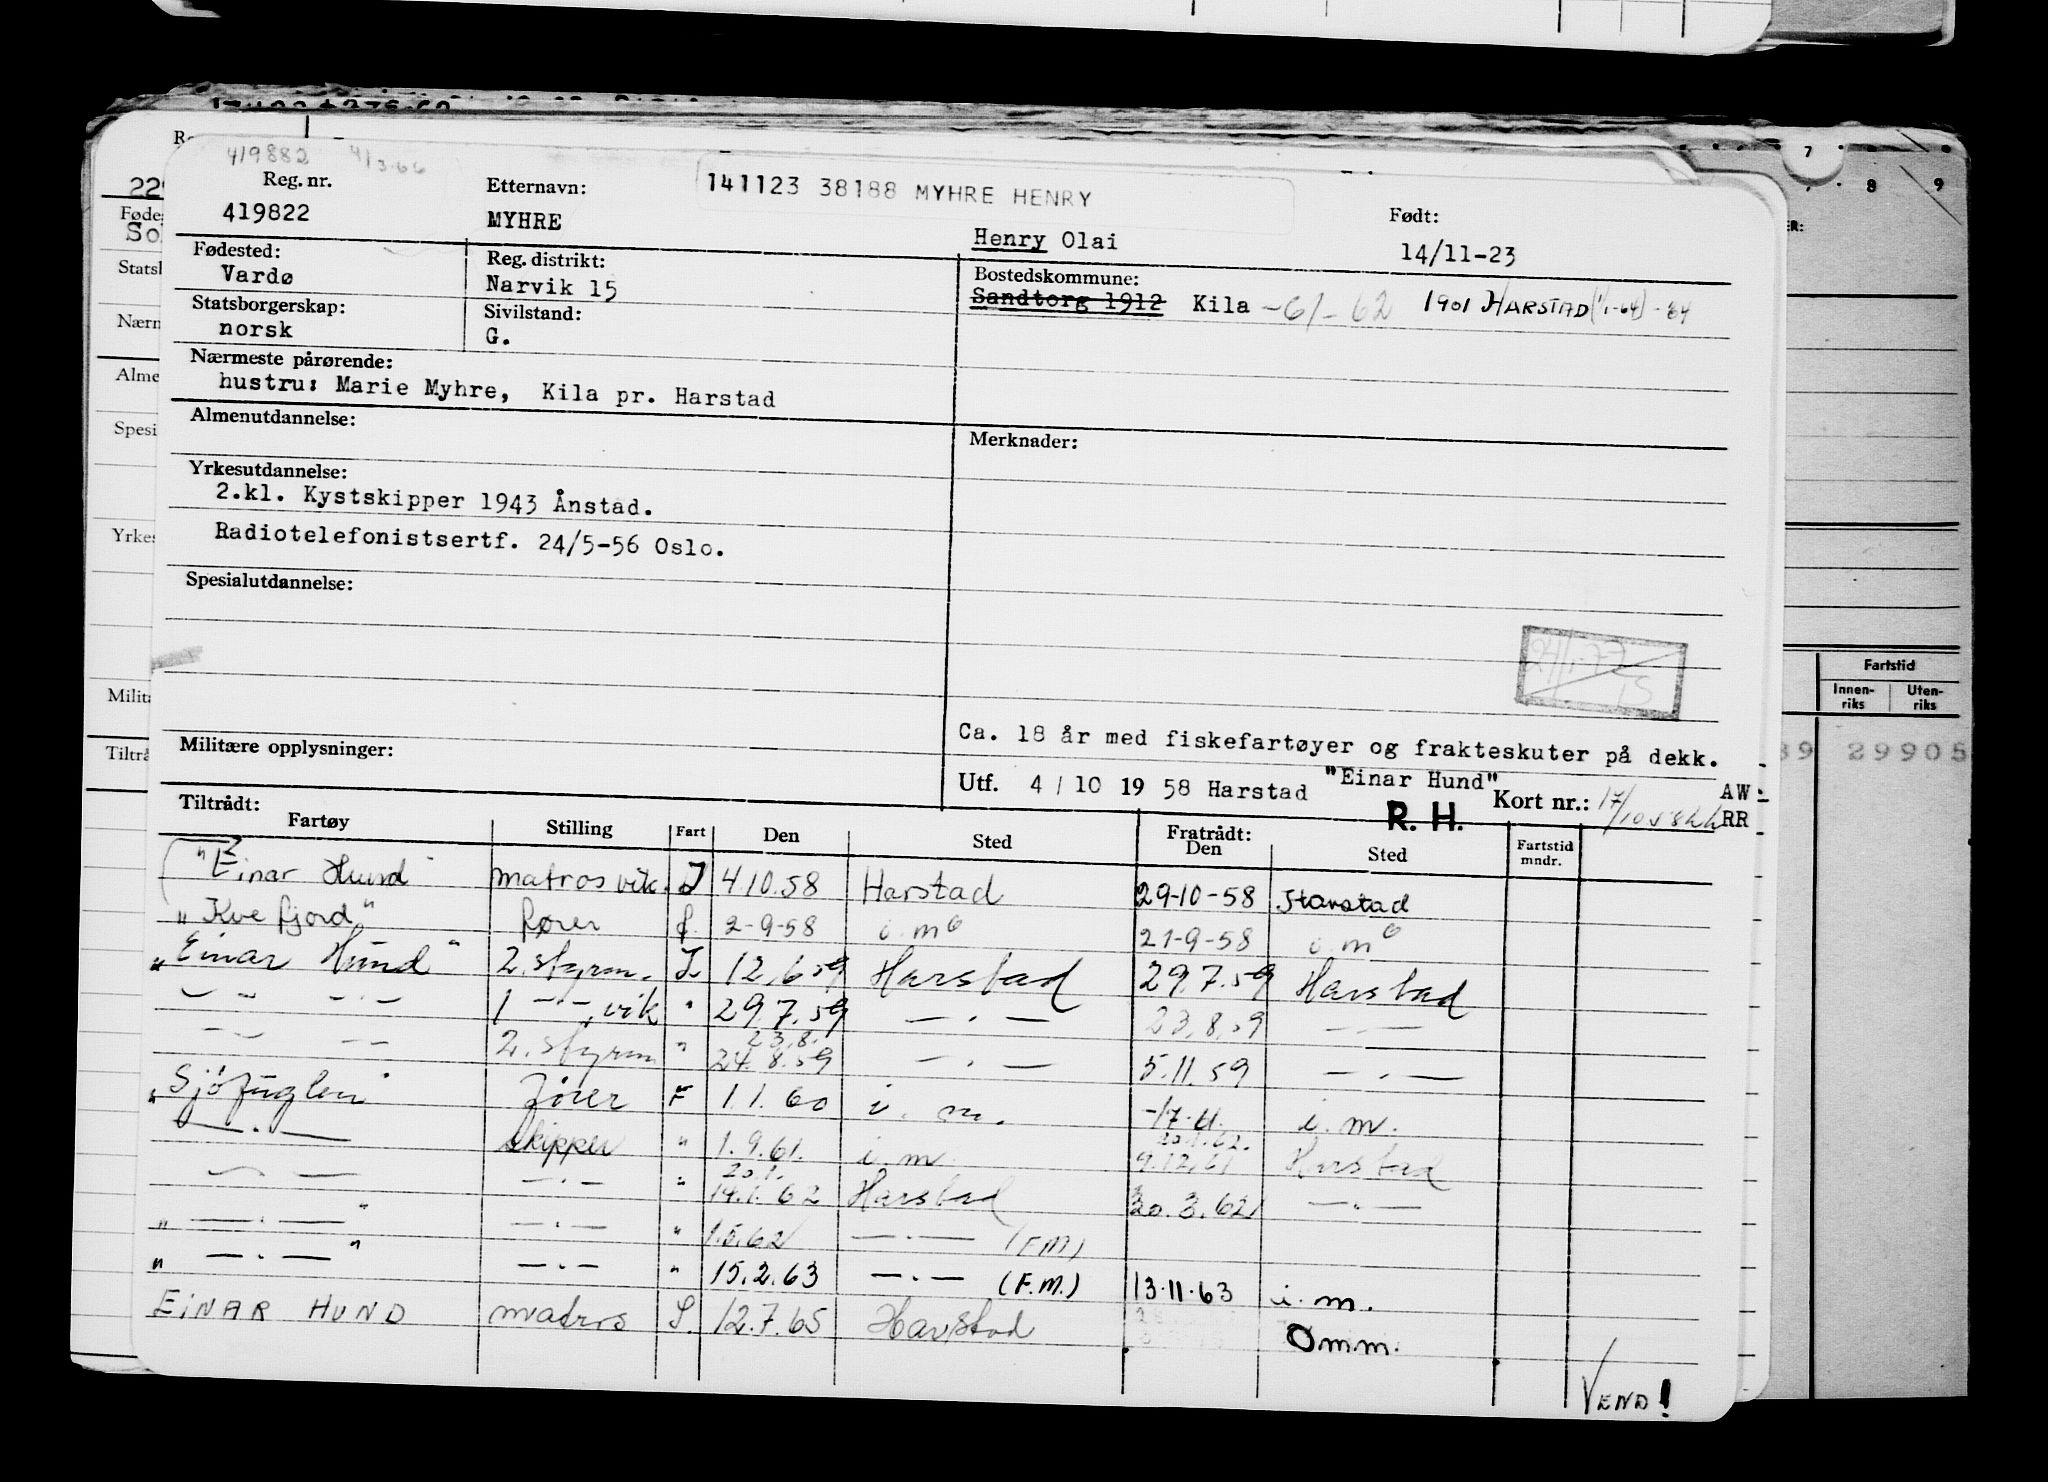 419882 4/3-66
141123 38188 MYHRE HENRY
Reg. nr. Etternavn: Født:
419822 MYHRE Henry Olai 14/11-23
Fødested: Reg. distrikt: Bostedskommune:
Vardø Narvik 15 Sandtorg 1912 Kila -6/- 62 1901 HARSTAD (1/1-64) -84
Statsborgerskap: Sivilstand:
norsk G.
Nærmeste pårørende:
hustru: Marie Myhre, Kila pr. Harstad
Almenutdannelse: Merknader:
Yrkesutdannelse:
2.kl. Kystskipper 1943 Ånstad.
Radiotelefonistsertf. 24/5-56 Oslo.
Spesialutdannelse:
24/1-77
15
Militære opplysninger:
Ca. 18 år med fiskefartøyer og frakteskuter på dekk.
Utf. 4/10 19 58 Harstad "Einar Hund" R. H. Kort nr.: 17/10 58 AW RR
Tiltrådt: Fratrådt:
Fartøy Stilling Fart Den Sted Den Sted Fartstid mndr.
"Einar Hund" matros vik. I 4.10.58 Harstad 29-10-58 Harstad
"Kvefjord" fører f. 2-9-58 i.m⁰ 21-9-58 i.m⁰
"Einar Hund" 2. styrm. I. 12.6.59 Harstad 29.7.59 Harstad
— " — 1 —"—, vik " 29.7.59 — . — 23.8.59 — . —
23.8.
— — 2. styrm " 24.8.59 — . — 5.11.59 — . —
"Sjøfuglen" fører F 1.1.60 i. m. -17.4. i. m.
20.1.62.
— . — skipper " 1.9.61. i. m. 9.12.61 Harstad
20.1.
— — — . — " 14.1.62 Harstad 30.3.62 — . —
" — . — " — . — " 1.5.62 — . — (F.M)
" — . — " — . — " 15.2.63 — . — (F.M.) 13.11.63 i. m.
EINAR HUND matros I. 12.7.65 Harstad Omm.
VEND!
Fartstid
Innenriks Utenriks
29905
7
8
9